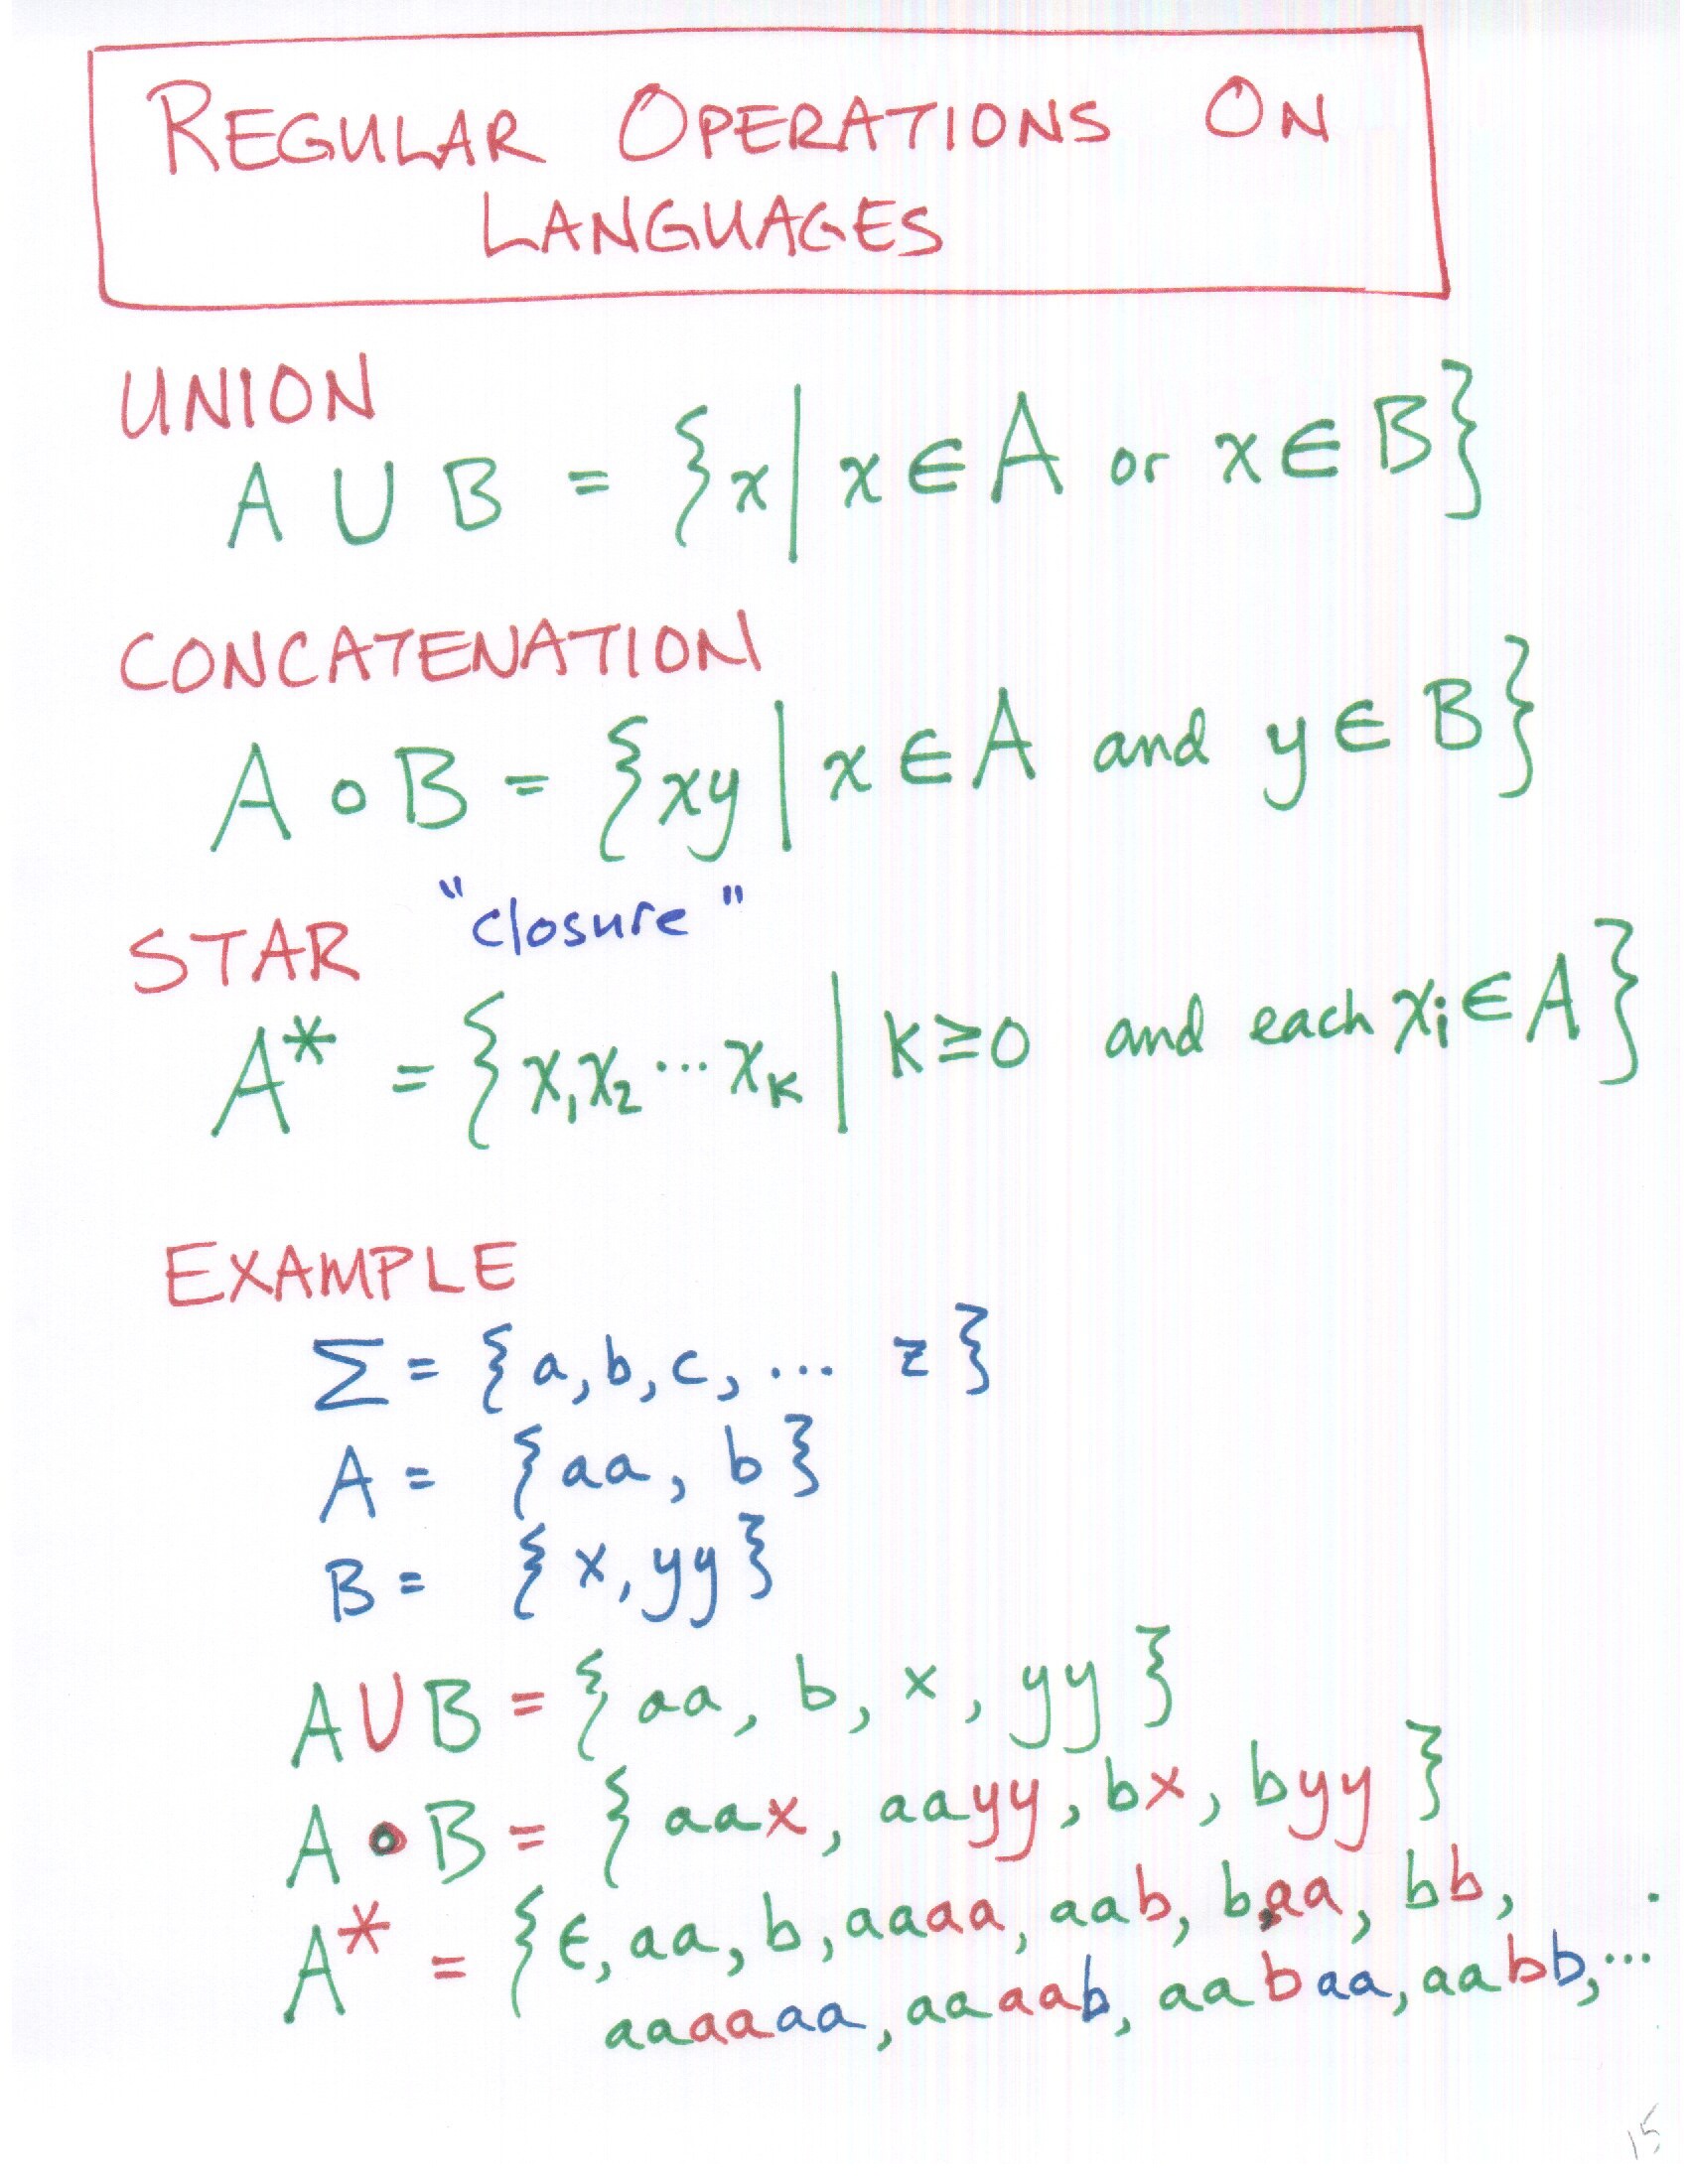 REGULAR OPERATIONS ON
LANGUAGES
UNION
A ∪ B = {x | x ∈ A or x ∈ B}
CONCATENATION
A ∘ B = {xy | x ∈ A and y ∈ B}
STAR "closure"
A* = {x₁x₂ ··· xₖ | k ≥ 0 and each xᵢ ∈ A}
EXAMPLE
Σ = {a, b, c, ... z}
A = {aa, b}
B = {x, yy}
A ∪ B = {aa, b, x, yy}
A ∘ B = {aax, aayy, bx, byy}
A* = {ϵ, aa, b, aaaa, aab, baa, bb,
aaaaaa, aaaab, aabaa, aabb, ...
15